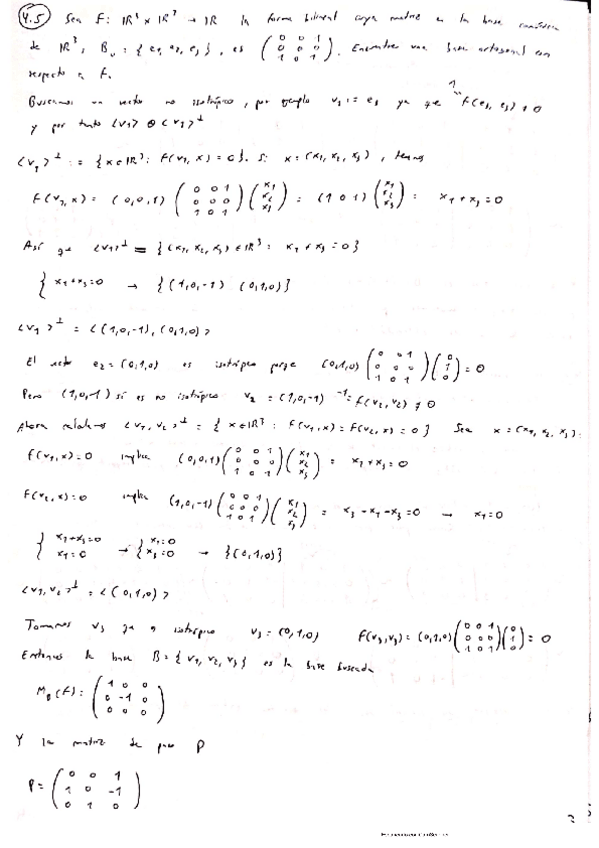 4.5) Sea F: ℝ³ × ℝ³ → ℝ la forma bilineal cuya matriz en la base canónica
de ℝ³, Bᵤ = {e₁, e₂, e₃}, es (0 0 1 / 0 0 0 / 1 0 1). Encontrar una base ortogonal con
respecto a F.
Buscamos un vector no isotrópico, por ejemplo v₁ := e₃ ya que 1 = F(e₃, e₃) ≠ 0
y por tanto <v₁> ⊕ <v₁>^⊥
<v₁>^⊥ := {x ∈ ℝ³: F(v₁, x) = 0}. Si x = (x₁, x₂, x₃), tenemos
F(v₁, x) = (0,0,1) (0 0 1 / 0 0 0 / 1 0 1) (x₁ / x₂ / x₃) = (1 0 1) (x₁ / x₂ / x₃) = x₁ + x₃ = 0
Así que <v₁>^⊥ = {(x₁, x₂, x₃) ∈ ℝ³: x₁ + x₃ = 0}
{ x₁ + x₃ = 0 → {(1,0,-1) (0,1,0)}
<v₁>^⊥ = <(1,0,-1), (0,1,0)>
El vector e₂ = (0,1,0) es isotrópico porque (0,1,0) (0 0 1 / 0 0 0 / 1 0 1) (0 / 1 / 0) = 0
Pero (1,0,-1) sí es no isotrópico v₂ = (1,0,-1) -1 = F(v₂, v₂) ≠ 0
Ahora <v₁, v₂>^⊥ = {x ∈ ℝ³: F(v₁, x) = F(v₂, x) = 0} Sea x = (x₁, x₂, x₃):
F(v₁, x) = 0 implica (0,0,1) (0 0 1 / 0 0 0 / 1 0 1) (x₁ / x₂ / x₃) = x₁ + x₃ = 0
F(v₂, x) = 0 implica (1,0,-1) (0 0 1 / 0 0 0 / 1 0 1) (x₁ / x₂ / x₃) = x₃ - x₁ - x₃ = 0 → x₁ = 0
{ x₁ + x₃ = 0 / x₁ = 0 → { x₁ = 0 / x₃ = 0 → {(0,1,0)}
<v₁, v₂>^⊥ = <(0,1,0)>
Tomamos v₃ isotrópico v₃ = (0,1,0) F(v₃, v₃) = (0,1,0) (0 0 1 / 0 0 0 / 1 0 1) (0 / 1 / 0) = 0
Entonces la base B = {v₁, v₂, v₃} es la base buscada
M_B(F) = (1 0 0 / 0 -1 0 / 0 0 0)
Y la matriz de paso P
P = (0 0 1 / 1 0 -1 / 0 1 0)